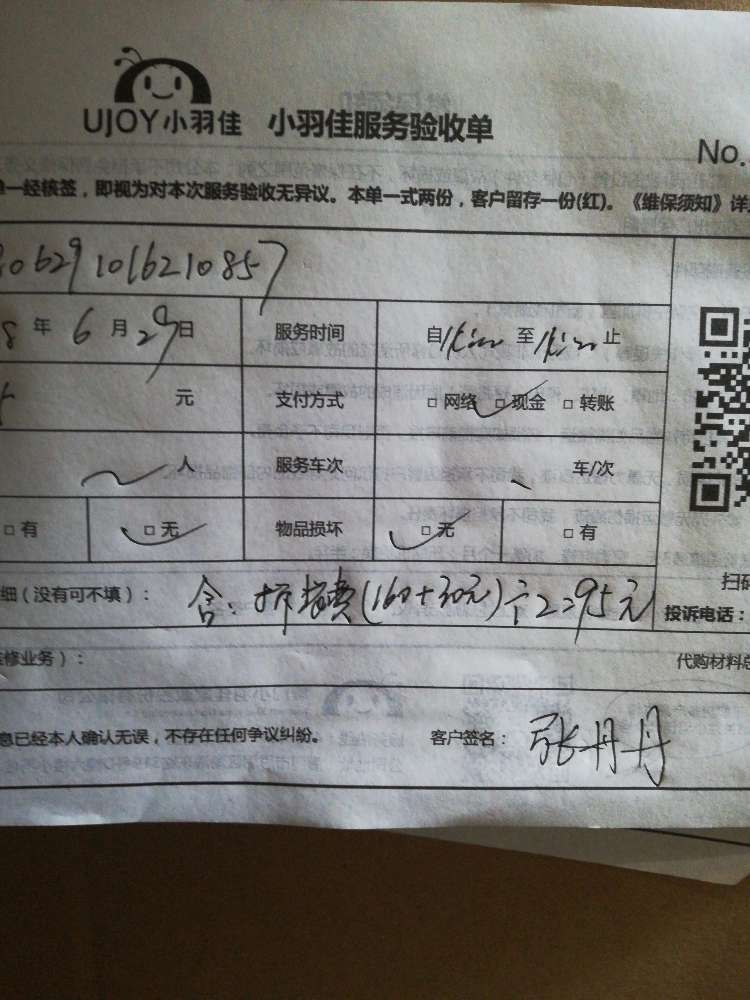 UJOY小羽佳 小羽佳服务验收单
No.
单一经核签，即视为对本次服务验收无异议。本单一式两份，客户留存一份(红)。《维保须知》详
06291016210857
8 年 6 月 29 日 服务时间 自 至 止
元 支付方式 □ 网络 □ 现金 □ 转账
人 服务车次 车/次
□ 有 □ 无 物品损坏 □ 无 □ 有
扫码
细(没有可不填)： 含：拆 费(160+30元)÷2=95元
投诉电话：
维修业务)： 代购材料总
息已经本人确认无误，不存在任何争议纠纷。 客户签名： 张丹丹